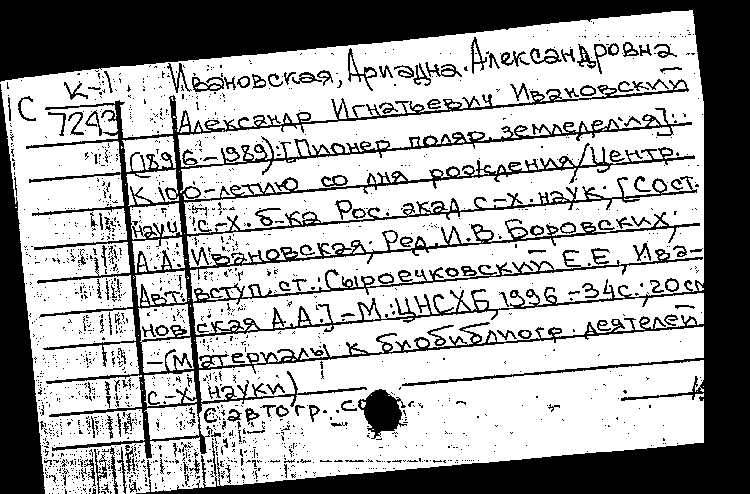 Ивановская, Ариадна Александровна
С К-1
7243
Александр Игнатьевич Ивановский
(1896-1989): [Пионер поляр. земледелия]:
К 100-летию со дня рождения/Центр.
науч. с-х. б-ка Рос. акад с-х. наук; [Сост.
А.А. Ивановская; Ред. И.В. Боровских;
Авт. вступ. ст.: Сыроечковский Е.Е., Ива-
новская А.А.] - М.: ЦНСХБ, 1996. - 34с.; 20см
-(Материалы к биобиблиогр. деятелей
с.-х. науки)
с автогр.